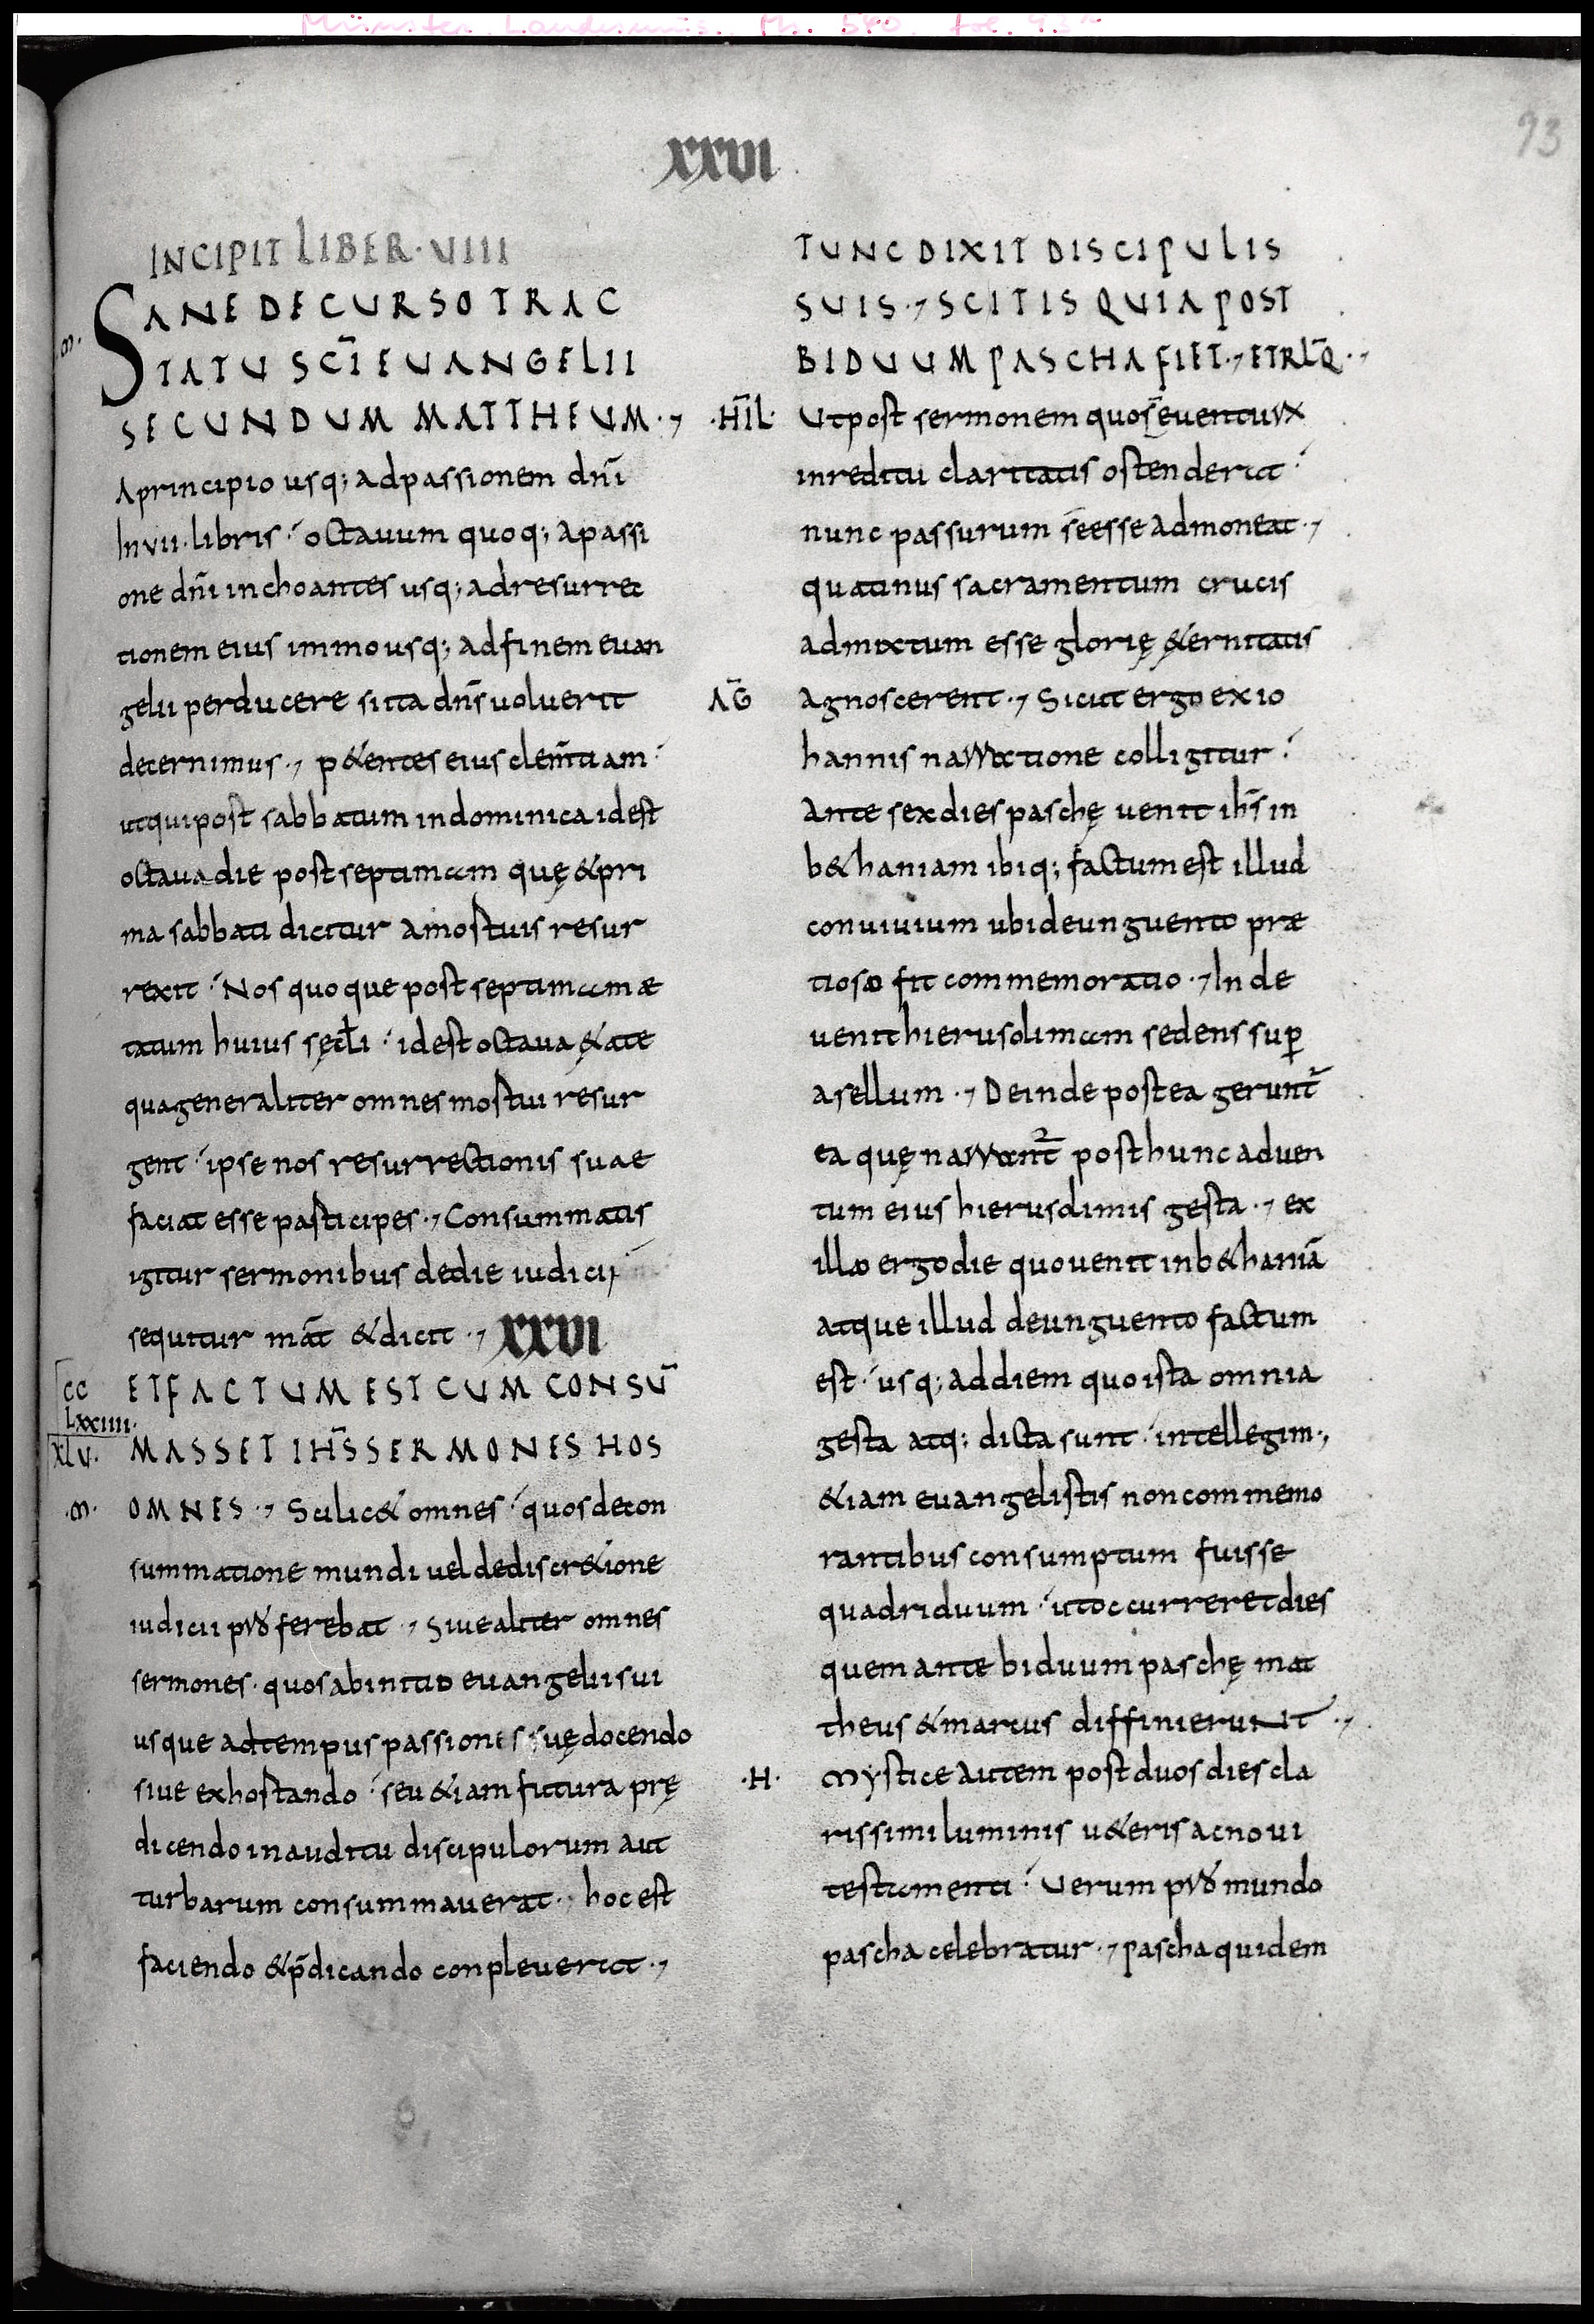 XXVI
93
INCIPIT LIBER·VIII
SANE DECURSO TRAC
TATU SC̄I EUANGELII
SECUNDUM MATTHEUM·,
Aprincipio usq; adpassionem dn̄i
In vii·libris· octauum quoq; apassi
one dn̄i inchoantes usq; adresurrec
tionem eius immo usq; adfinem euan
gelii perducere sita dn̄s uoluerit
decernimus·, p&entes eius clem̄tiam·
utquipost sabbatum indominica idest
octaua die post septimam quę &pri
ma sabbati dicitur amortuis resur
rexit· Nos quoque post septimam æ
tatum huius sęcłi· idest octaua &ate
quageneraliter omnes mortui resur
gent· ipse nos resurrectionis suae
faciat esse participes·, Consummatis
igitur sermonibus dedie iudicii
sequitur māt &dicit·, XXVI
CC
LXXIIII·
XLV·
ETFACTUM EST CUM CONSŪ
MASSET IH̄S SERMONES HOS
·M·
OMNES·, Scilic& omnes· quosdecon
summatione mundi uel dediscr&ione
iudicii pro ferebat·, Siue aliter omnes
sermones· quosabinitio euangelii sui
usque adtempus passionis suę docendo
siue exhortando· seu &iam futura prę
dicendo inauditu discipulorum aut
turbarum consummauerat·, hoc est
faciendo &p̄dicando conpleuerat·,
TUNC DIXIT DISCIPULIS
SUIS·, SCITIS QUIA POST
BIDUUM PASCHA FIET·, ETRLQ̄·,
·HĪL·
Utpost sermonem quo sē uenturum
inreditu claritatis ostenderat·
nunc passurum sēesse admoneat·,
quatinus sacramentum crucis
admixtum esse glorię &ernitatis
AḠ
agnoscerent·, Sicut ergo exio
hannis narratione colligitur·
Ante sexdies paschę uenit ih̄s in
b&haniam ibiq; factum est illud
conuiuium ubideunguento præ
tioso fit commemoratio·, Inde
uenit hierusolimam sedens sup̱
asellum·, Deinde postea gerunt̄
ea quę narrant̄ posthunc aduen
tum eius hierusolimis gesta·, ex
illo ergo die quo uenit inb&haniā
atque illud deunguento factum
est· usq; addiem quo ista omnia
gesta atq; dicta sunt· intellegim·,
&iam euangelistis non commemo
rantibus consumptum fuisse
quadriduum· utoccurreret dies
quem ante biduum paschę mat
theus &marcus diffinierunt·,
·H·
Mystice autem post duos dies cla
rissimi luminis u&eris ac noui
testamenti· Uerum pro mundo
pascha celebratur·, pascha quidem